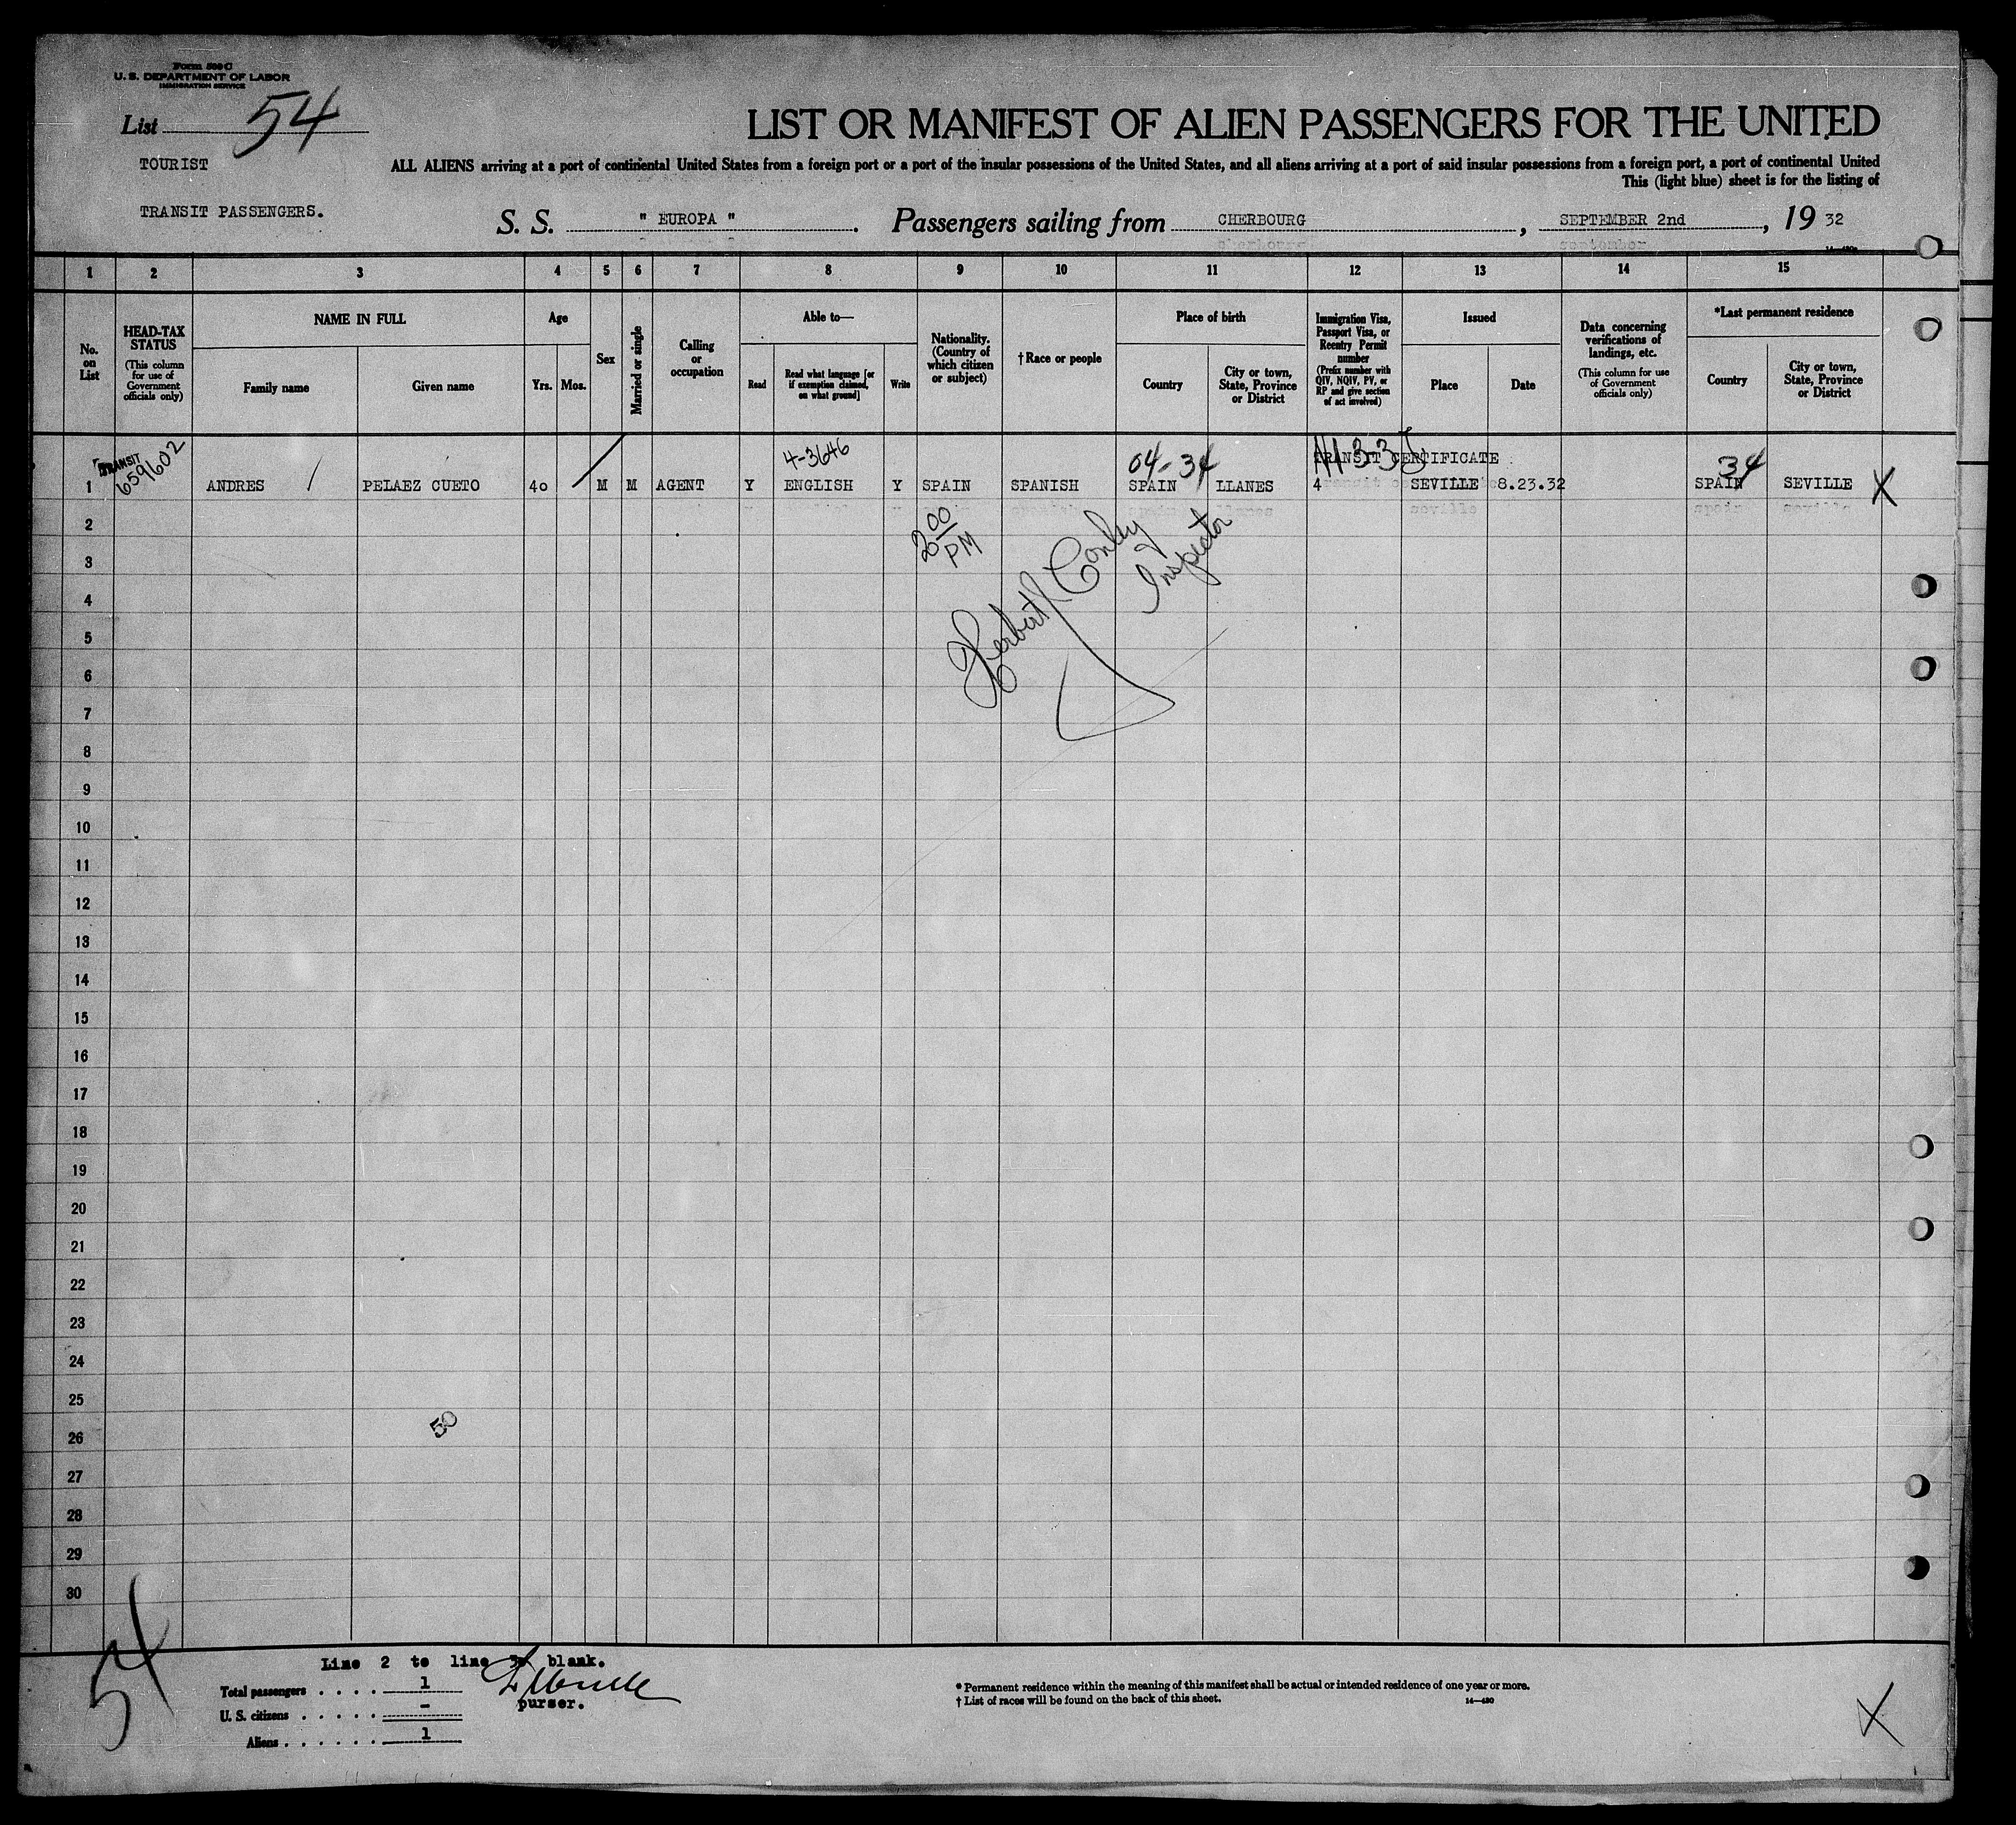 Form 500 C
U. S. DEPARTMENT OF LABOR
IMMIGRATION SERVICE
List 54
LIST OR MANIFEST OF ALIEN PASSENGERS FOR THE UNITED
TOURIST
ALL ALIENS arriving at a port of continental United States from a foreign port or a port of the insular possessions of the United States, and all aliens arriving at a port of said insular possessions from a foreign port, a port of continental United
This (light blue) sheet is for the listing of
TRANSIT PASSENGERS.
S. S. " EUROPA ". Passengers sailing from CHERBOURG, SEPTEMBER 2nd, 19 32
1 2 3 4 5 6 7 8 9 10 11 12 13 14 15
No. on List
HEAD-TAX STATUS (This column for use of Government officials only)
NAME IN FULL
Family name
Given name
Age
Yrs. Mos.
Sex
Married or single
Calling or occupation
Able to—
Read
Read what language [or if exemption claimed, on what ground]
Write
Nationality. (Country of which citizen or subject)
†Race or people
Place of birth
Country
City or town, State, Province or District
Immigration Visa, Passport Visa, or Reentry Permit number (Prefix number with QIV, NQIV, PV, or RP and give section of act involved)
Issued
Place
Date
Data concerning verifications of landings, etc. (This column for use of Government officials only)
*Last permanent residence
Country
City or town, State, Province or District
TRANSIT 659602
4-3646
04-34
TRANSIT CERTIFICATE
34
1 ANDRES PELAEZ CUETO 40 M M AGENT Y ENGLISH Y SPAIN SPANISH SPAIN LLANES 4 SEVILLE 8.23.32 SPAIN SEVILLE X
2
2 00 PM
Herbert Conley
Inspector
3
4
5
6
7
8
9
10
11
12
13
14
15
16
17
18
19
20
21
22
23
24
25
50
26
27
28
29
30
54
Line 2 to line 30 blank.
Total passengers . . . . 1
purser.
U. S. citizens . . . . . -
Aliens . . . . . . 1
* Permanent residence within the meaning of this manifest shall be actual or intended residence of one year or more.
† List of races will be found on the back of this sheet. 14—480
X